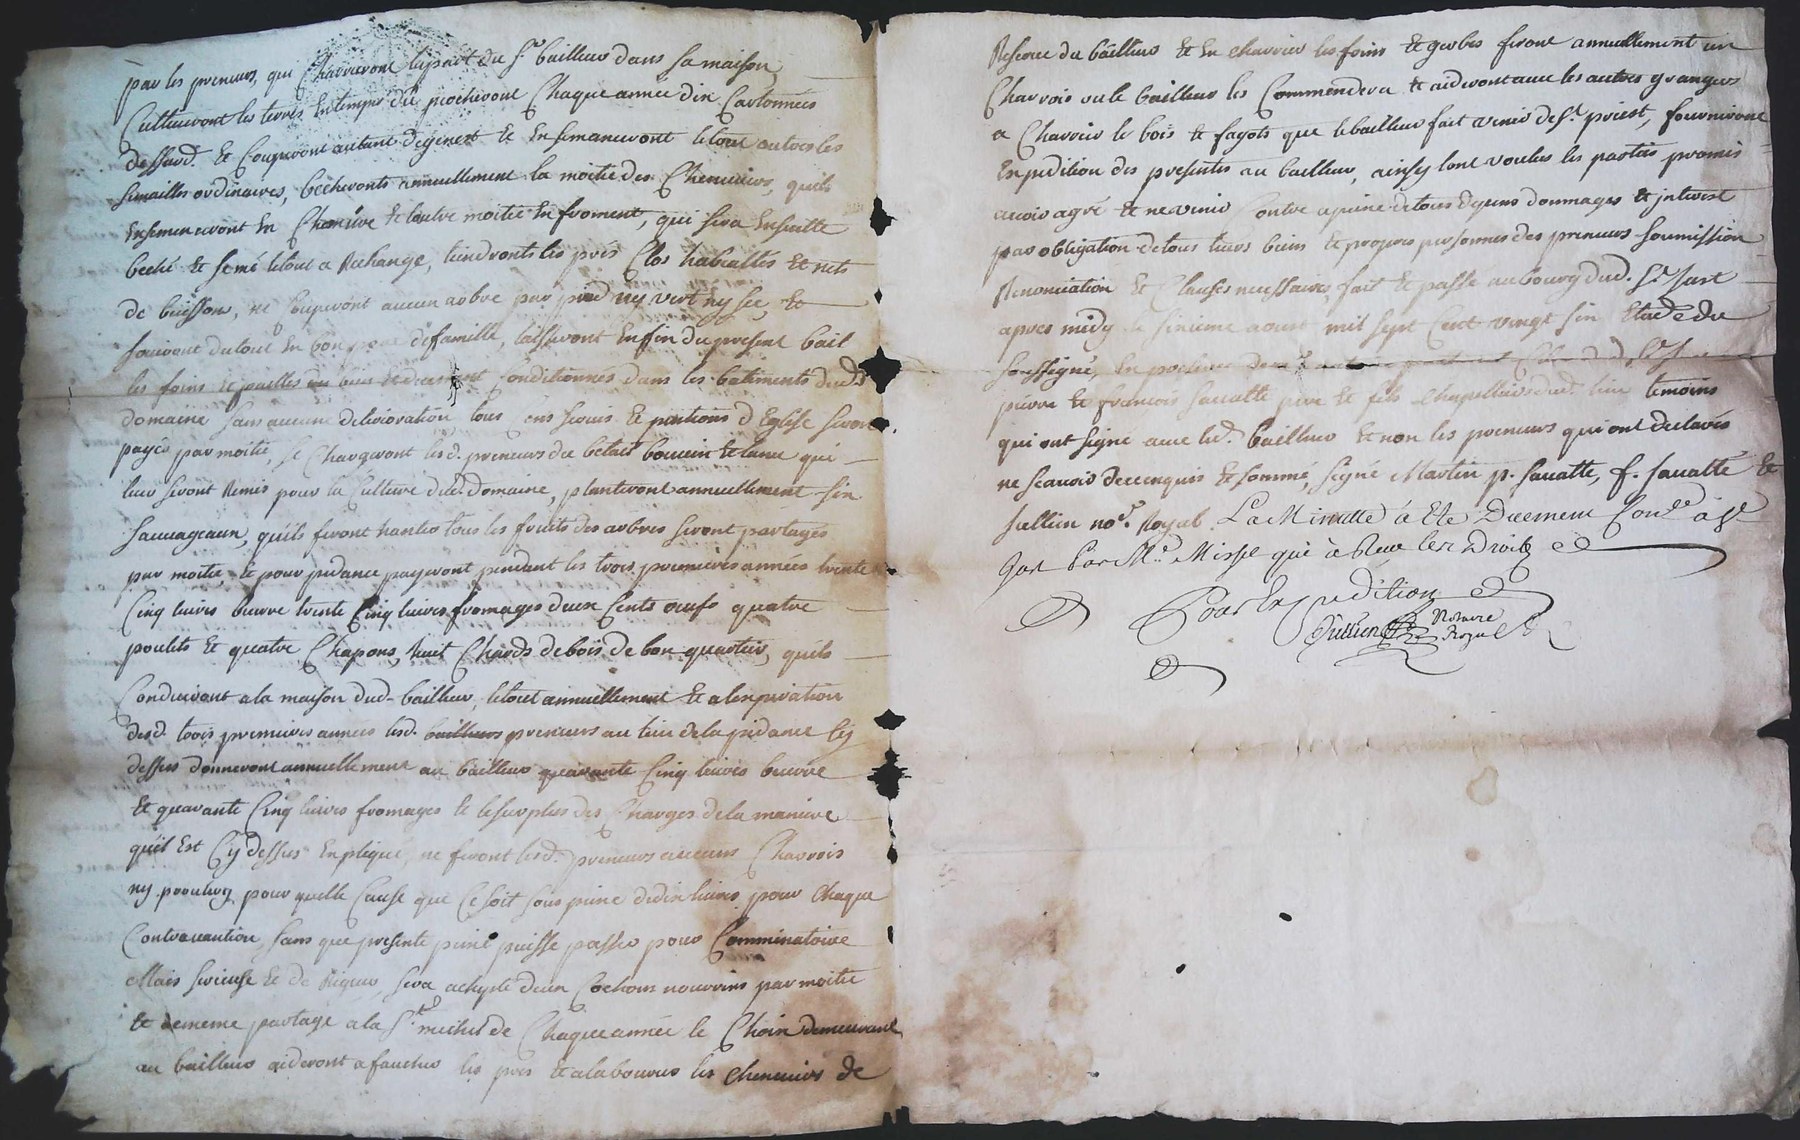 par les preneurs, qui Charrieront la part du Sr. bailleur dans sa maison
Cultiveront les terres En temps dû piocheront Chaque année dix Cartonnées
dessard. Et Couperont autant de genest Et Ensemanceront le tout autoes les
semailles ordinaires, becheronts annuellement la moitié des Chenevier, quils
Ensemenceront En Chenûve Et lautre moitié En froment, qui sera Ensuitte
beché Et semé letout a Rechange, tiendronts les prés Clos rabiallés Et nets
de buissons, ne Couperont aucun arbre par pied ny vert ny sec, Et
jouiront dutout En bon pere de famille, laisseront Enfin du present bail
les foins Et pailles Conditionnés dans les batiments dud.
domaine sans aucune deterioration, tous cens servis Et portions d'Eglise seront
payés par moitié, se Chargeront lesd. preneurs du betail bouvin Et lanu qui
leur seront Remis pour la Culture dud. domaine, planteront annuellement six
sauvageaux, quils feront hanter tous les fruits des arbres seront partagés
par moitié, Et pour pidance payeront pendant les trois premieres années trente
Cinq livres beurre trente Cinq livres fromages deux Cents oeufs quatre
poulets Et quatre Chapons, huit Chards de bois de bon quartier, quils
Conduiront a la maison dud. bailleur, letout annuellement Et a lexpiration
desd. trois premieres années lesd. bailleurs preneurs au lieu de la pidance Cy
dessus donneront annuellement au bailleur quarante Cinq livres beurre
Et quarante Cinq livres fromages Et le surplus des Charges de la maniere
quil Est Cy dessus Expliqué, ne feront lesd. preneurs aucuns Charrois
ny pour quelle Cause que Ce soit sous peine de dix livres pour Chaque
Contravantion, sans que presente peine puisse passer pour Comminatoire
Mais serieuse Et de Rigueur, sera achepté deux Cochons nourrins par moitié
Et dememe partagé a la St. michel de Chaque année le Choix demeurant
au bailleur aideront a faucher les prés Et a labourer les Cheneviers de
Reserve du bailleur Et En charrier les foins Et gerbes feront annuellement un
Charrois ou le bailleur les Commendera Et aideront avec les autres grangers
a Charrier le bois Et fagots que le bailleur fait venir de St. priest, fourniront
Expedition des presentes au bailleur, ainsy lont voulus les parties promis
avoir agré Et ne venir Contre a peine de tous depens dommages Et jnterest
par obligation de tous leurs biens Et propres personnes des preneurs soumission
Renonciation Et Clauses necessaires, fait Et passé au bourg dud. St. Just
apres midy le sixieme aoust mil sept Cent vingt six
soussigné, En presence de
pierre Et francois sauatte pere Et fils Chapelliers dud. lieu temoins
qui ont signé avec led. bailleur Et non les preneurs qui ont declarés
ne scavoir de ce enquis Et sommé, signé Martin p. sauatte, f. sauatte Et
jullien nore. Royal. La Minutte à Ete Duement Conlé à St
Just Par Mr. Misse qui à Receu les Droits
Pour Expedition
Jullien Notaire
Royal